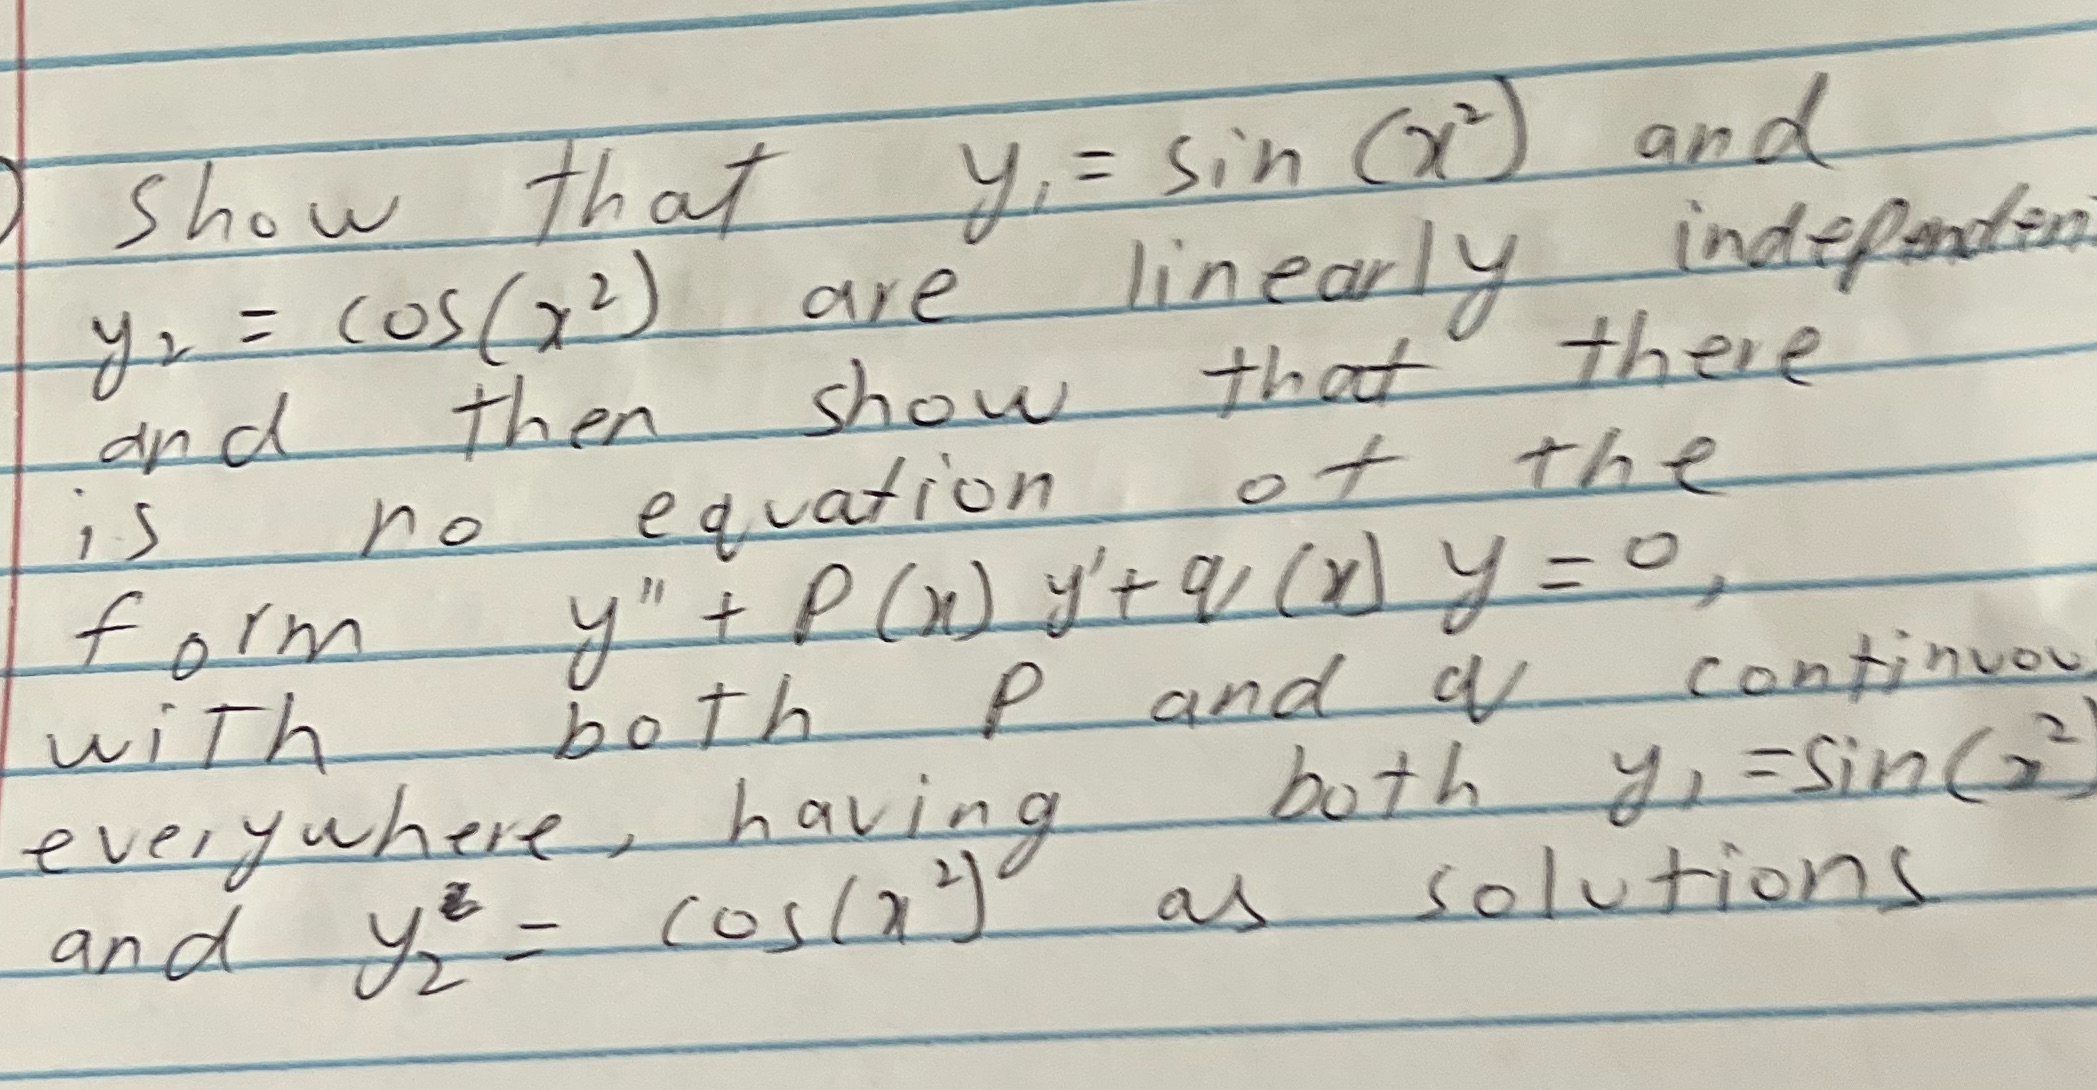 ) show that y₁ = sin (x²) and
y₂ = cos(x²) are linearly independent
and then show that there
is no equation of the
form y" + P(x) y' + q(x) y = 0,
with both P and q continuou
everywhere, having both y₁ = sin(x²)
and y₂ = cos(x²) as solutions